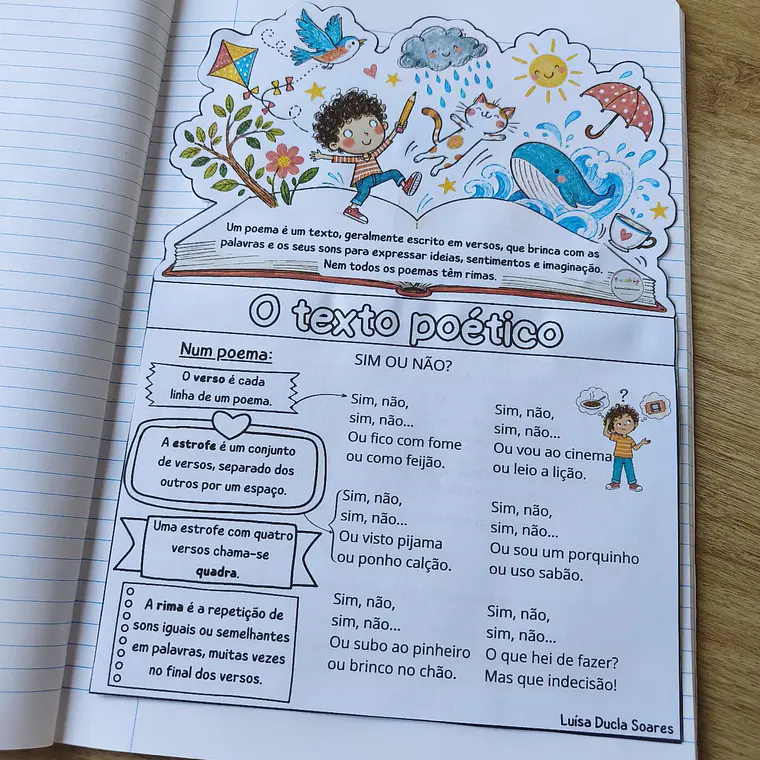 Um poema é um texto, geralmente escrito em versos, que brinca com as
palavras e os seus sons para expressar ideias, sentimentos e imaginação.
Nem todos os poemas têm rimas.
O texto poético
Num poema:
O verso é cada
linha de um poema.
A estrofe é um conjunto
de versos, separado dos
outros por um espaço.
Uma estrofe com quatro
versos chama-se
quadra.
A rima é a repetição de
sons iguais ou semelhantes
em palavras, muitas vezes
no final dos versos.
SIM OU NÃO?
Sim, não,
sim, não...
Ou fico com fome
ou como feijão.
Sim, não,
sim, não...
Ou visto pijama
ou ponho calção.
Sim, não,
sim, não...
Ou subo ao pinheiro
ou brinco no chão.
Sim, não,
sim, não...
Ou vou ao cinema
ou leio a lição.
?
Sim, não,
sim, não...
Ou sou um porquinho
ou uso sabão.
Sim, não,
sim, não...
O que hei de fazer?
Mas que indecisão!
Luísa Ducla Soares